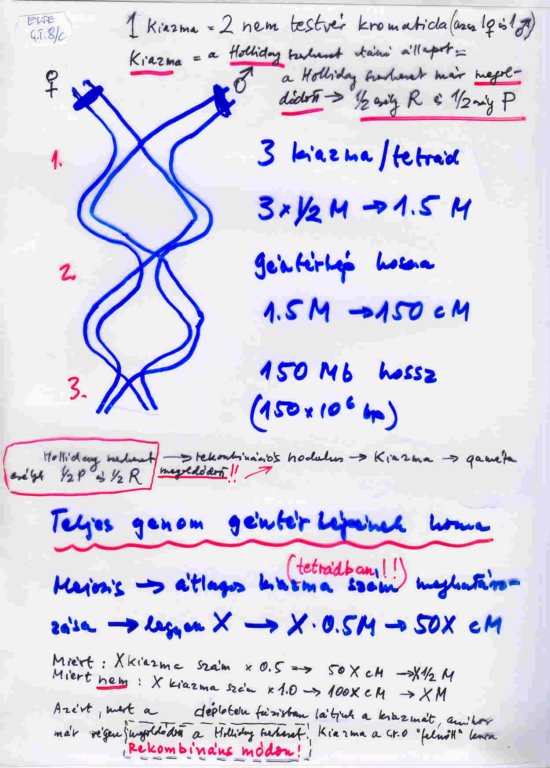 ELTE
G.T. B/C
1 Kiazma = 2 nem testvér kromatida (azaz 1♀ és 1♂)
Kiazma = a Holliday szerkezet utáni állapot =
a Holliday szerkezet már megol-
dódott → 1/2 esély R és 1/2 esély P
♀ ♂
1.
3 kiazma/tetrád
3 × 1/2 M → 1.5 M
2.
géntérkép hossza
1.5 M → 150 cM
3.
150 Mb hossz
(150 × 10⁶ bp)
Holliday szerkezet → rekombinációs nodulus → Kiazma → gaméta
esélyek 1/2 P és 1/2 R megoldódott!!
Teljes genom géntérképeinek hossza
(tetrádban!!)
Meiózis → átlagos kiazma szám meghatáro-
zása → legyen X → X · 0.5M → 50X cM
Miért : X kiazma szám × 0.5 → 50X cM → X 1/2 M
Miért nem : X kiazma szám × 1.0 → 100X cM → XM
Azért, mert a diplotén fázisban látjuk a kiazmát, amikor
már régen megoldódott a Holliday szerkezet. Kiazma a c.o
Rekombináns módon!